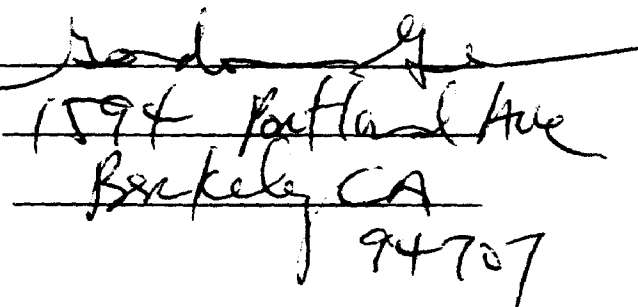 Gordon
1594 Portland Ave
Berkeley CA
94707